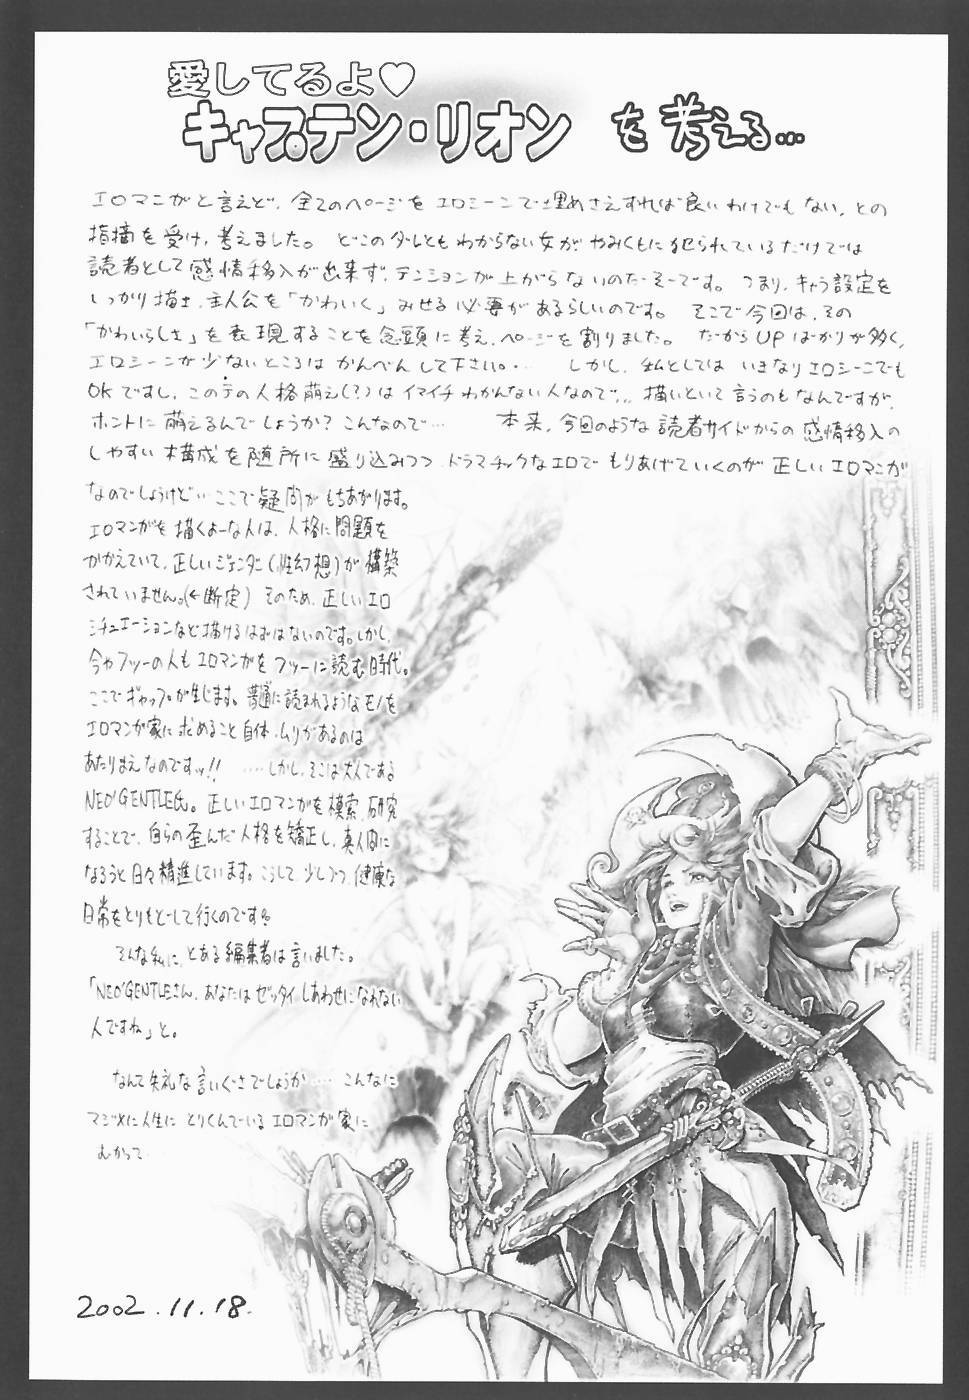 愛してるよ♡
キャプテン・リオン を考える…
エロマンガと言えど、全てのページをエロシーンで埋めさえすれば良いわけでもない、との
指摘を受け、考えました。 どこのダレともわからない女がやみくもに犯られているだけでは
読者として感情移入が出来ず、テンションが上がらないのだそーです。 つまり、キャラ設定を
しっかり描き、主人公を「かわいく」みせる必要があるらしいのです。 そこで今回は、その
「かわいらしさ」を表現することを念頭に考え、ページを割りました。 だからUPばかりが多く、
エロシーンが少ないところはかんべんして下さい。… しかし、私としてはいきなりエロシーンでも
OKですし、このテの人格萌え(?)はイマイチわかんない人なので… 描いといて言うのもなんですが、
ホントに萌えるんでしょうか?こんなので… 本来、今回のような読者サイドからの感情移入の
しやすい構成を随所に盛り込みつつ、ドラマチックなエロでもりあげていくのが正しいエロマンガ
なのでしょうけど… ここで疑問がもちあがります。
エロマンガを描くよーな人は、人格に問題を
かかえていて、正しいジェンダー(性幻想)が構築
されていません。(←断定) そのため、正しいエロ
シチュエーションなど描けるはずはないのです。しかし、
今やフツーの人もエロマンガをフツーに読む時代。
ここでギャップが生じます。普通に読まれるようなモノを
エロマンガ家に求めること自体、ムリがあるのは
あたりまえなのですッ!! ……しかし、そこは大人である
NEO'GENTLE氏。正しいエロマンガを模索、研究
することで、自らの歪んだ人格を矯正し、真人間に
なろうと日々精進しています。こうして少しづつ健康な
日常をとりもどして行くのです。
そんな私に、とある編集者は言いました。
「NEO'GENTLEさん、あなたはゼッタイしあわせになれない
人ですね」と。
なんて失礼な言いぐさでしょうか…… こんなに
マジメに人生にとりくんでいるエロマンガ家に
むかって
2002.11.18.